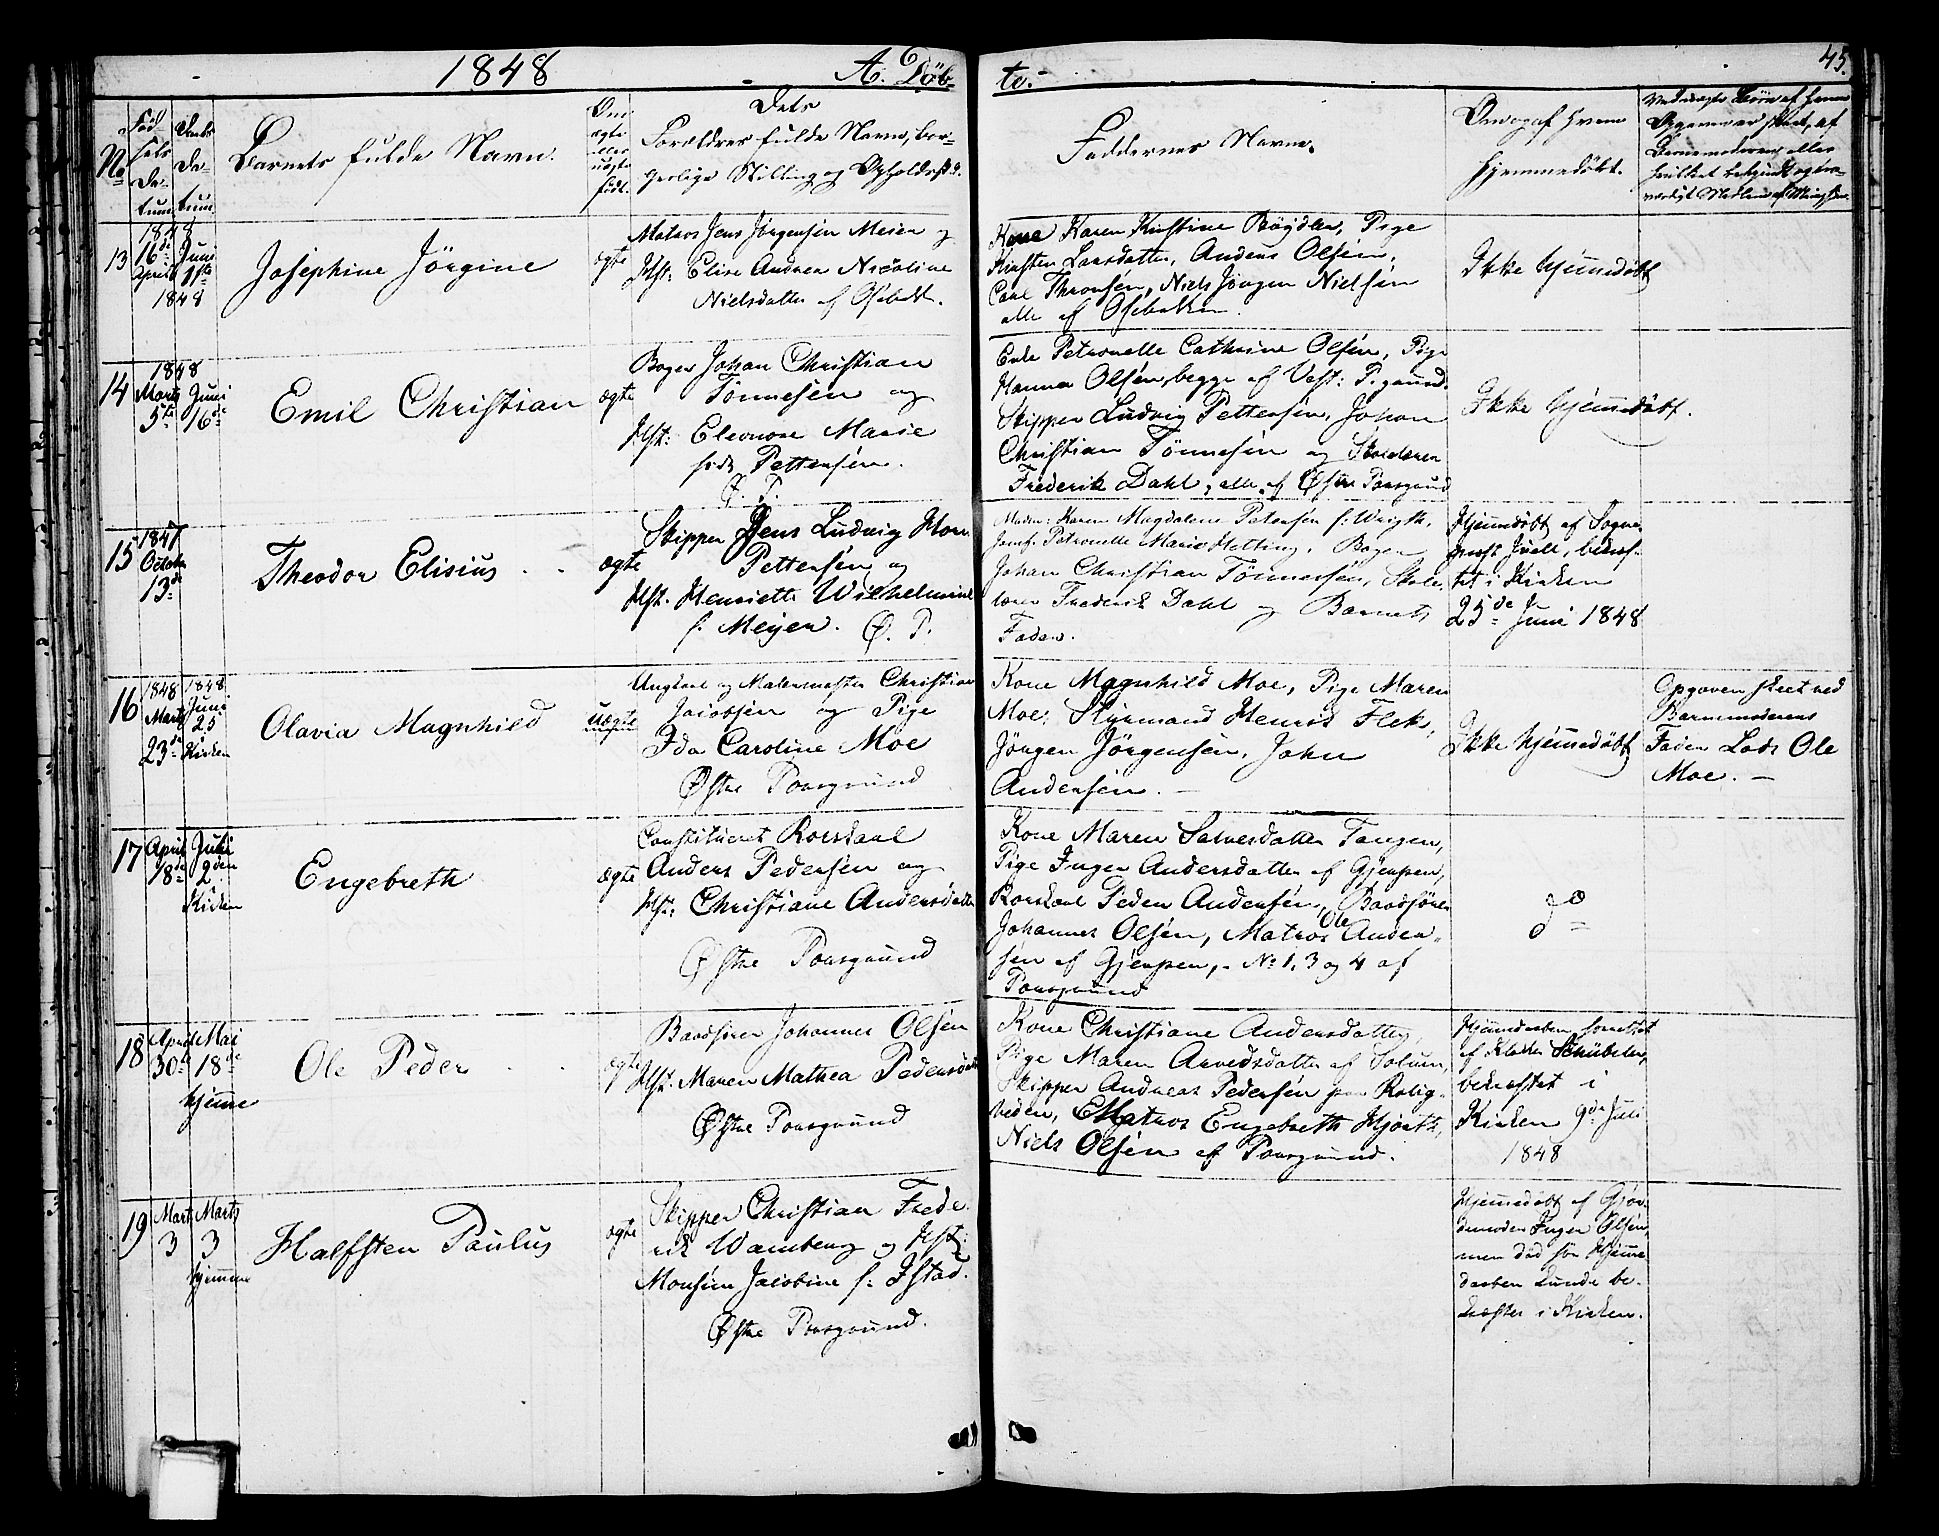 1848 A. Döb-
te.
45.
No
Födsels Datum
Daabs Datum
Barnets fulde Navn.
Om ægte eller uægte födt.
Dets
Forældres fulde Navn, bor-
gerlige Stilling og Opholdssted.
Faddernes Navne.
Om og af hvem
hjemmedöbt.
13
1848
16de April
1848
Juni
11te
Josephine Jörgine
ægte
Matros Jens Jörgensen Meier og
Hst: Elise Andrea Nicoline
Nielsdatter af Osebak.
Kone Karen Kirstine Böydler, Pige
Kirsten Larsdatter, Anders Olsen,
Carl Thronsen, Niels Jörgen Nielsen
alle af Osebakken.
Ikke hjemmedöbt
14
1848
Marts
5te
Juni
16de
Emil Christian
ægte
Bager Johan Christian
Tönnesen og
Hst: Eleonore Marie
født Pettersen.
Ø. P.
Enke Petronelle Cathrine Olsen, Pige
Hanna Olsen, begge af Vest: P.grund.
Skipper Ludvig Pettersen, Johan
Christian Tönnesen og Skolelærer
Frederik Dahl, alle af Østre Porsgrund
Ikke hjemmedöbt.
15
1847
October
13de
Theodor Elisius
ægte
Skipper Jens Ludvig Horn
Pettersen og
Hst. Henriette Wilhelmine
f. Meyer. Ø. P.
Madm: Karen Magdalena Petersen f: Wrigth,
Jomf: Petronelle Marie Hetting, Bager
Johan Christian Tönnesen, Skole-
lærer Frederik Dahl og Barnets
Fader.
Hjemmedöbt af Sogne-
præst Juell, bekræf-
tet i Kirken
25de Juni 1848
16
1848
Marts
23de
1848
Juni
25
i
Kirken
Olavia Magnhild
uægte
Ungkarl og Malermester Christian
Jacobsen og Pige
Ida Caroline Moe
Østre Porsgrund
Kone Magnhild Moe, Pige Maren
Moe, Styrmand Henrik Flek,
Jörgen Jörgensen, John
Andersen.
Ikke hjemmedöbt
Opgaven skeet ved
Barnemoderens
Fader Lods Ole
Moe.
17
April
18de
Juli
2den
i
Kirken
Engebreth
ægte
Constitueret Rorskarl
Anders Pedersen og
Hst: Christiane Andersdatter
Østre Porsgrund
Kone Maren Salvesdatter Tangen,
Pige Inger Andersdatter af Gjerpen,
Rorskarl Peder Andersen, Baadförer
Johannes Olsen, Matros Ole Ander-
sen af Gjerpen, - No 1, 3 og 4 af
Porsgrund
do
18
April
30te
Mai
18de
hjemme
Ole Peder
ægte
Baadförer Johannes Olsen
Hst: Maren Mathea Pedersdatter
Østre Porsgrund
Kone Christiane Andersdatter,
Pige Maren Arvedsdatter af Solum,
Skipper Andreas Pedersen paa Rolig-
heden, Matros Engebreth Hjorth,
Niels Olsen af Porsgrund.
Hjemmedaaben forrettet
af Klokker Schübeler,
bekræftet i
Kirken 9de Juli
1848
19
Marts
3
Marts
3
hjemme
Halfsten Paulus
ægte
Skipper Christian Frede-
rik Wamberg og Hst:
Monsine Jacobine f: Ifstad.
Østre Porsgrund.
Hjemmedöbt af Gjor-
demoder Inger Olsen,
men död för Hjemme-
daaben kunde be-
kræftes i Kirken.